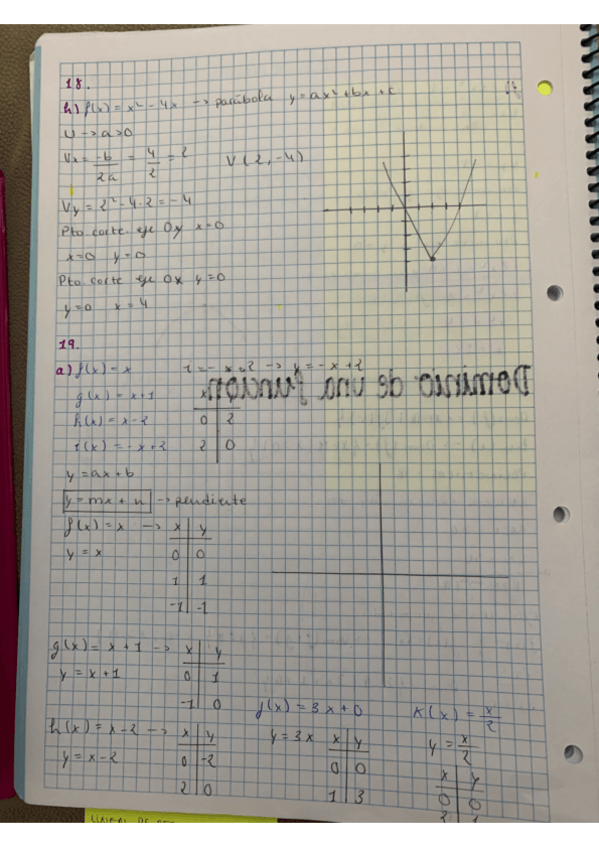 18.
h) f(x) = x² - 4x -> parábola y = ax² + bx + c
U -> a>0
Vx = -b/2a = 4/2 = 2 V(2, -4)
Vy = 2² - 4·2 = -4
Pto. corte eje Oy x=0
x=0 y=0
Pto. corte eje Ox y=0
y=0 x=4
19.
a) f(x) = x i = -x+2 -> y = -x+2
Dominio de una función
g(x) = x+1 x
h(x) = x-2 0 | 2
i(x) = -x+2 2 | 0
y = ax+b
y = mx + n -> pendiente
f(x) = x -> x | y
y = x 0 | 0
1 | 1
-1 | -1
g(x) = x+1 -> x | y
y = x+1 0 | 1
-1 | 0
j(x) = 3x+0 K(x) = x/2
h(x) = x-2 -> x | y y = 3x x | y y = x/2
y = x-2 0 | -2 0 | 0 x | y
2 | 0 1 | 3 0 | 0